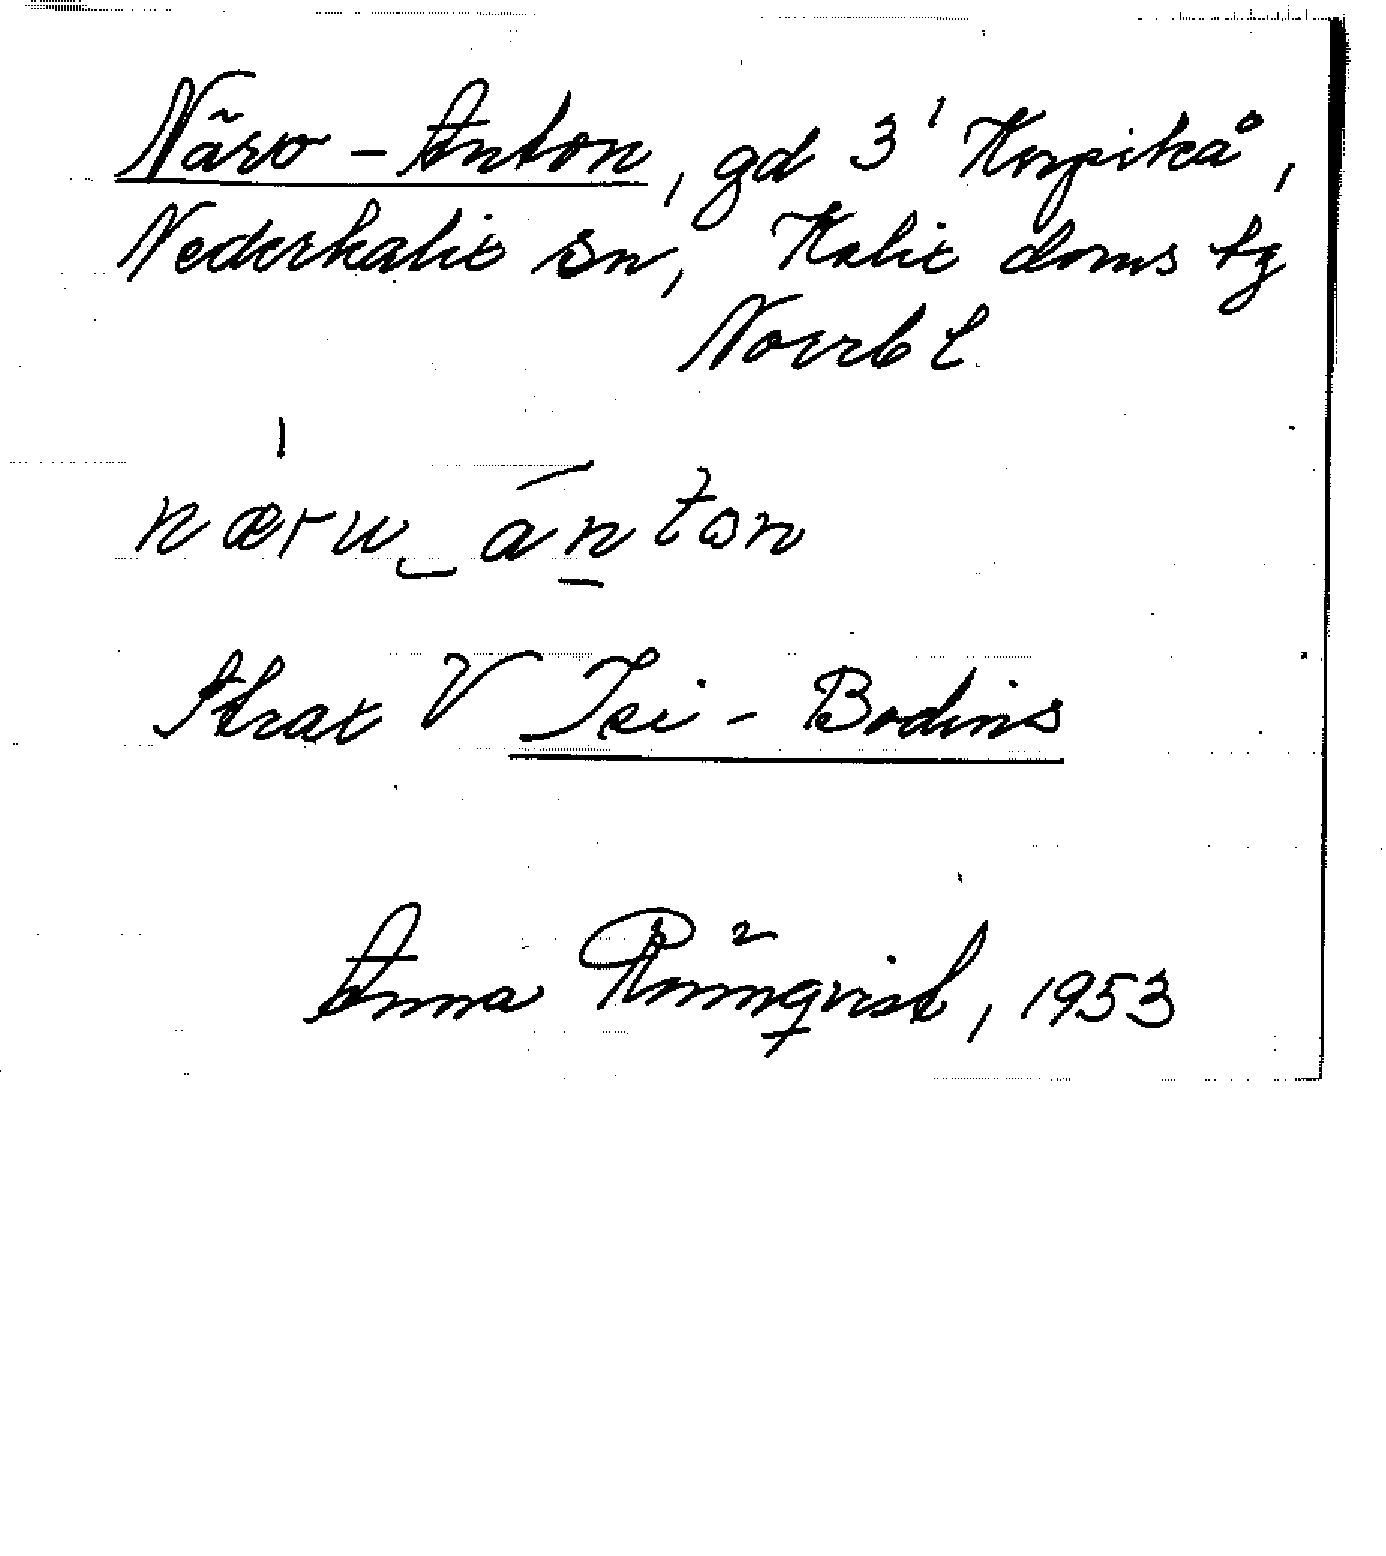 Närv-Anton, gd 3' Korpikå,
Nederkalix sn, Kalix doms tg
Norrb l.
nærv_ánton
Strax V Isi-Bodins
Anna Rönnqvist, 1953